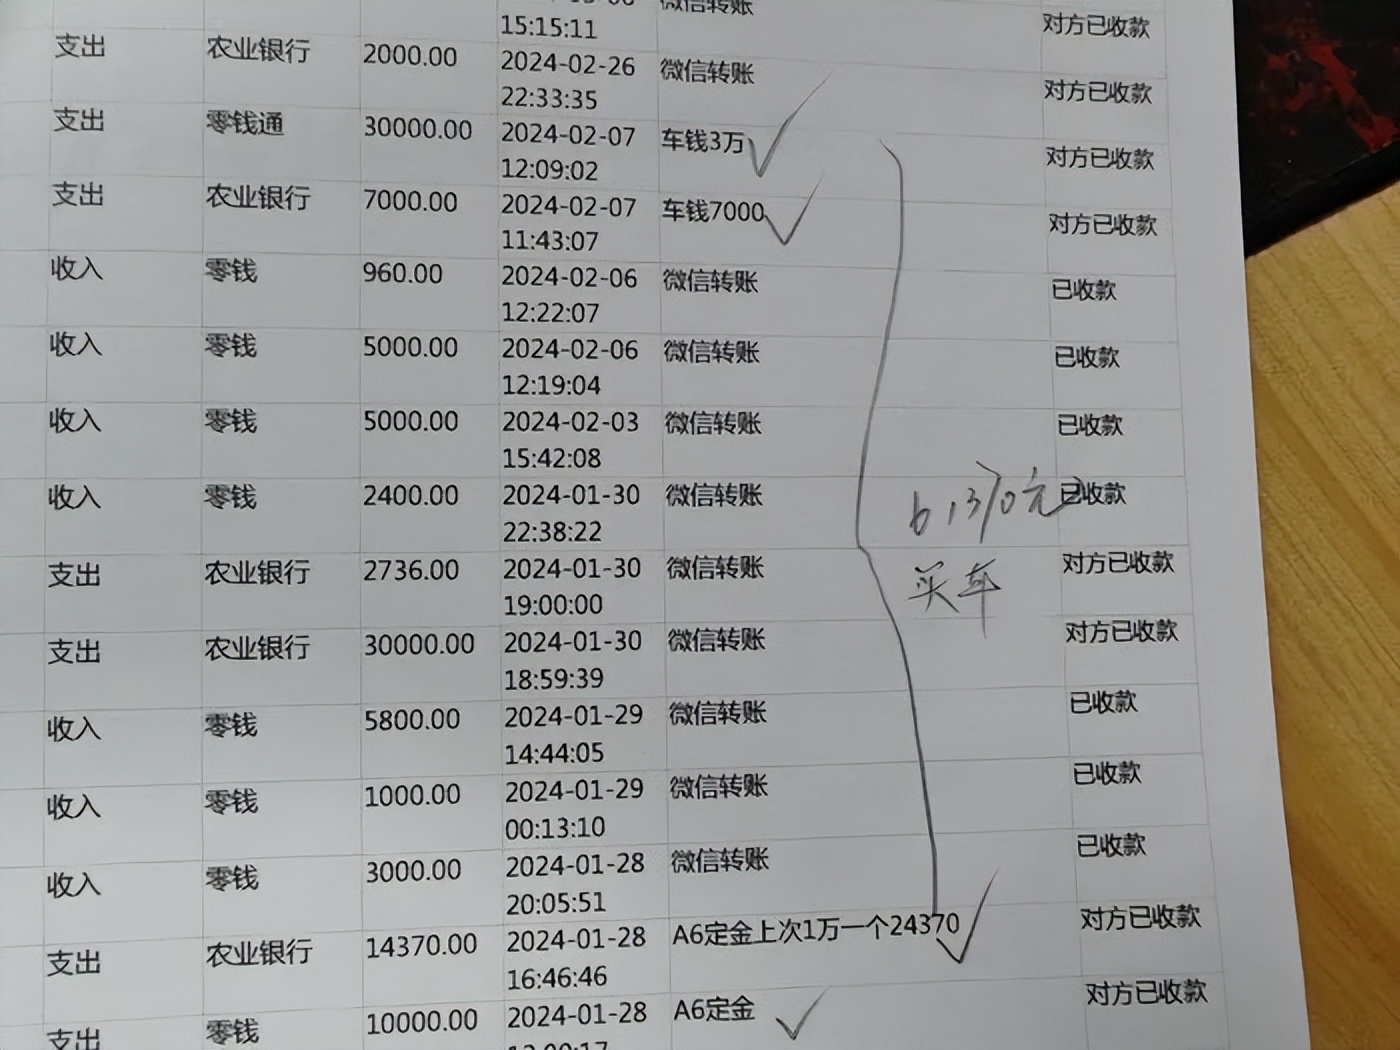 微信转账
15:15:11
对方已收款
支出 农业银行 2000.00 2024-02-26 微信转账
22:33:35
对方已收款
支出 零钱通 30000.00 2024-02-07 车钱3万
12:09:02
对方已收款
支出 农业银行 7000.00 2024-02-07 车钱7000
11:43:07
对方已收款
收入 零钱 960.00 2024-02-06 微信转账 已收款
12:22:07
收入 零钱 5000.00 2024-02-06 微信转账 已收款
12:19:04
收入 零钱 5000.00 2024-02-03 微信转账 已收款
15:42:08
收入 零钱 2400.00 2024-01-30 微信转账 已收款
22:38:22
61370元
支出 农业银行 2736.00 2024-01-30 微信转账 对方已收款
19:00:00
买车
支出 农业银行 30000.00 2024-01-30 微信转账 对方已收款
18:59:39
收入 零钱 5800.00 2024-01-29 微信转账 已收款
14:44:05
收入 零钱 1000.00 2024-01-29 微信转账 已收款
00:13:10
收入 零钱 3000.00 2024-01-28 微信转账 已收款
20:05:51
支出 农业银行 14370.00 2024-01-28 A6定金上次1万一个24370 对方已收款
16:46:46
支出 零钱 10000.00 2024-01-28 A6定金 对方已收款